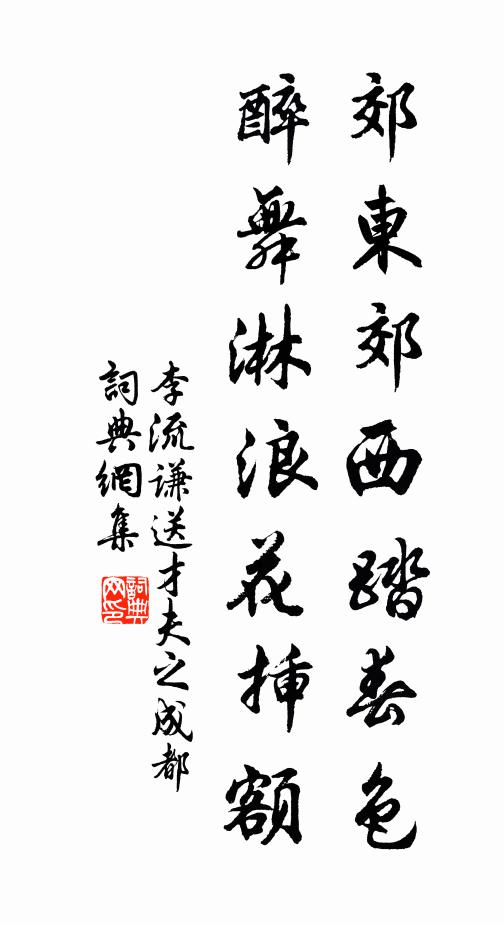 郊東郊西踏春色
醉舞淋浪花插額
李流謙送才夫之成都
詞典網集
詞典网印